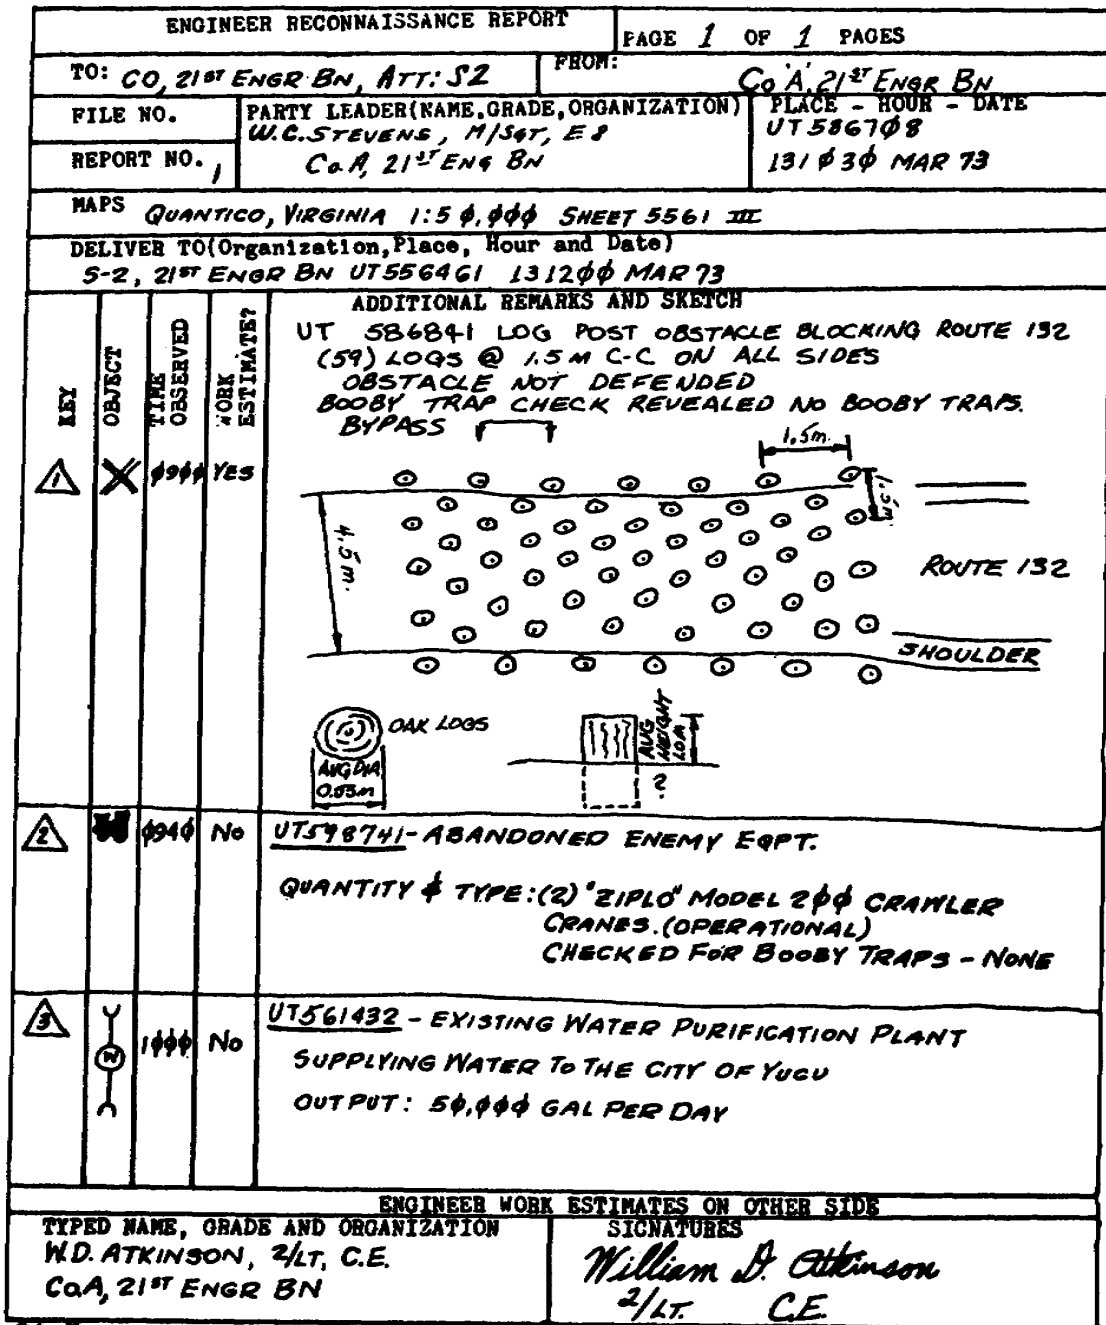 ENGINEER RECONNAISSANCE REPORT
PAGE 1 OF 1 PAGES
TO: CO, 21ST ENGR BN, ATT: S2
FROM: Co 'A', 21ST ENGR BN
FILE NO.
REPORT NO. 1
PARTY LEADER(NAME,GRADE,ORGANIZATION)
W.C. STEVENS, M/SGT, E8
Co. A, 21ST ENG BN
PLACE - HOUR - DATE
UT 586708
131Ø3Ø MAR 73
MAPS QUANTICO, VIRGINIA 1:5Ø,ØØØ SHEET 5561 III
DELIVER TO(Organization,Place, Hour and Date)
S-2, 21ST ENGR BN UT556461 1312ØØ MAR 73
KEY
OBJECT
TIME OBSERVED
WORK ESTIMATE?
ADDITIONAL REMARKS AND SKETCH
UT 586841 LOG POST OBSTACLE BLOCKING ROUTE 132
(59) LOGS @ 1.5 M C-C ON ALL SIDES
OBSTACLE NOT DEFENDED
BOOBY TRAP CHECK REVEALED NO BOOBY TRAPS.
BYPASS
1.5m.
1 Ø9ØØ YES
1.5 m
4.5 m.
ROUTE 132
SHOULDER
OAK LOGS
AVG DIA
AVG HEIGHT
?
2 Ø94Ø No
UT598741 - ABANDONED ENEMY EQPT.
QUANTITY & TYPE: (2) "ZIPLO" MODEL 2ØØ CRAWLER
CRANES. (OPERATIONAL)
CHECKED FOR BOOBY TRAPS - NONE
3 W 1ØØØ No
UT561432 - EXISTING WATER PURIFICATION PLANT
SUPPLYING WATER TO THE CITY OF YUGU
OUTPUT: 5Ø,ØØØ GAL PER DAY
ENGINEER WORK ESTIMATES ON OTHER SIDE
TYPED NAME, GRADE AND ORGANIZATION
W.D. ATKINSON, 2/LT, C.E.
Co.A, 21ST ENGR BN
SIGNATURES
William D. Atkinson
2/LT. C.E.